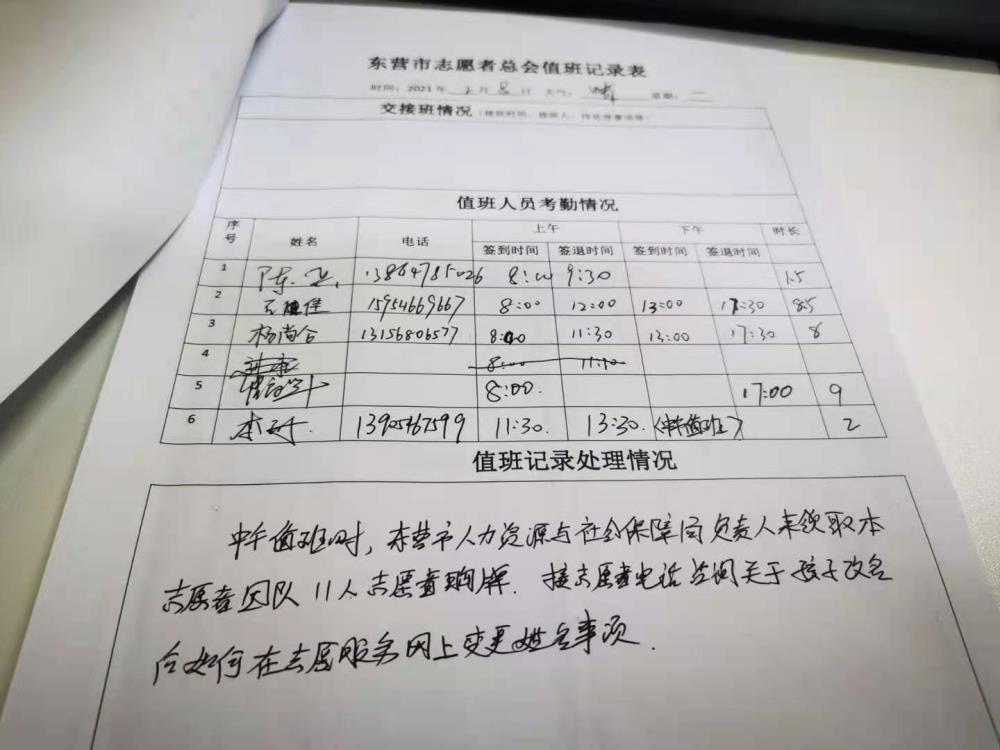 东营市志愿者总会值班记录表
时间：2021年 2月 8日 天气： 晴 星期：二
交接班情况
值班人员考勤情况
序号 姓名 电话 上午 下午 时长
签到时间 签退时间 签到时间 签退时间
1 陈 8:00 9:30 1.5
2 15954669667 8:00 12:00 13:00 17:30 8.5
3 杨尚合 13156806577 8:00 11:30 13:00 17:30 8
4 8:00 11:30
5 8:00. 17:00 9
6 13905467599 11:30. 13:30. (中午值班) 2
值班记录处理情况
中午值班时，东营市人力资源与社会保障局负责人来领取本
志愿者团队11人志愿者胸牌. 接志愿者电话咨询关于孩子改名
后如何在志愿服务网上变更姓名事项.